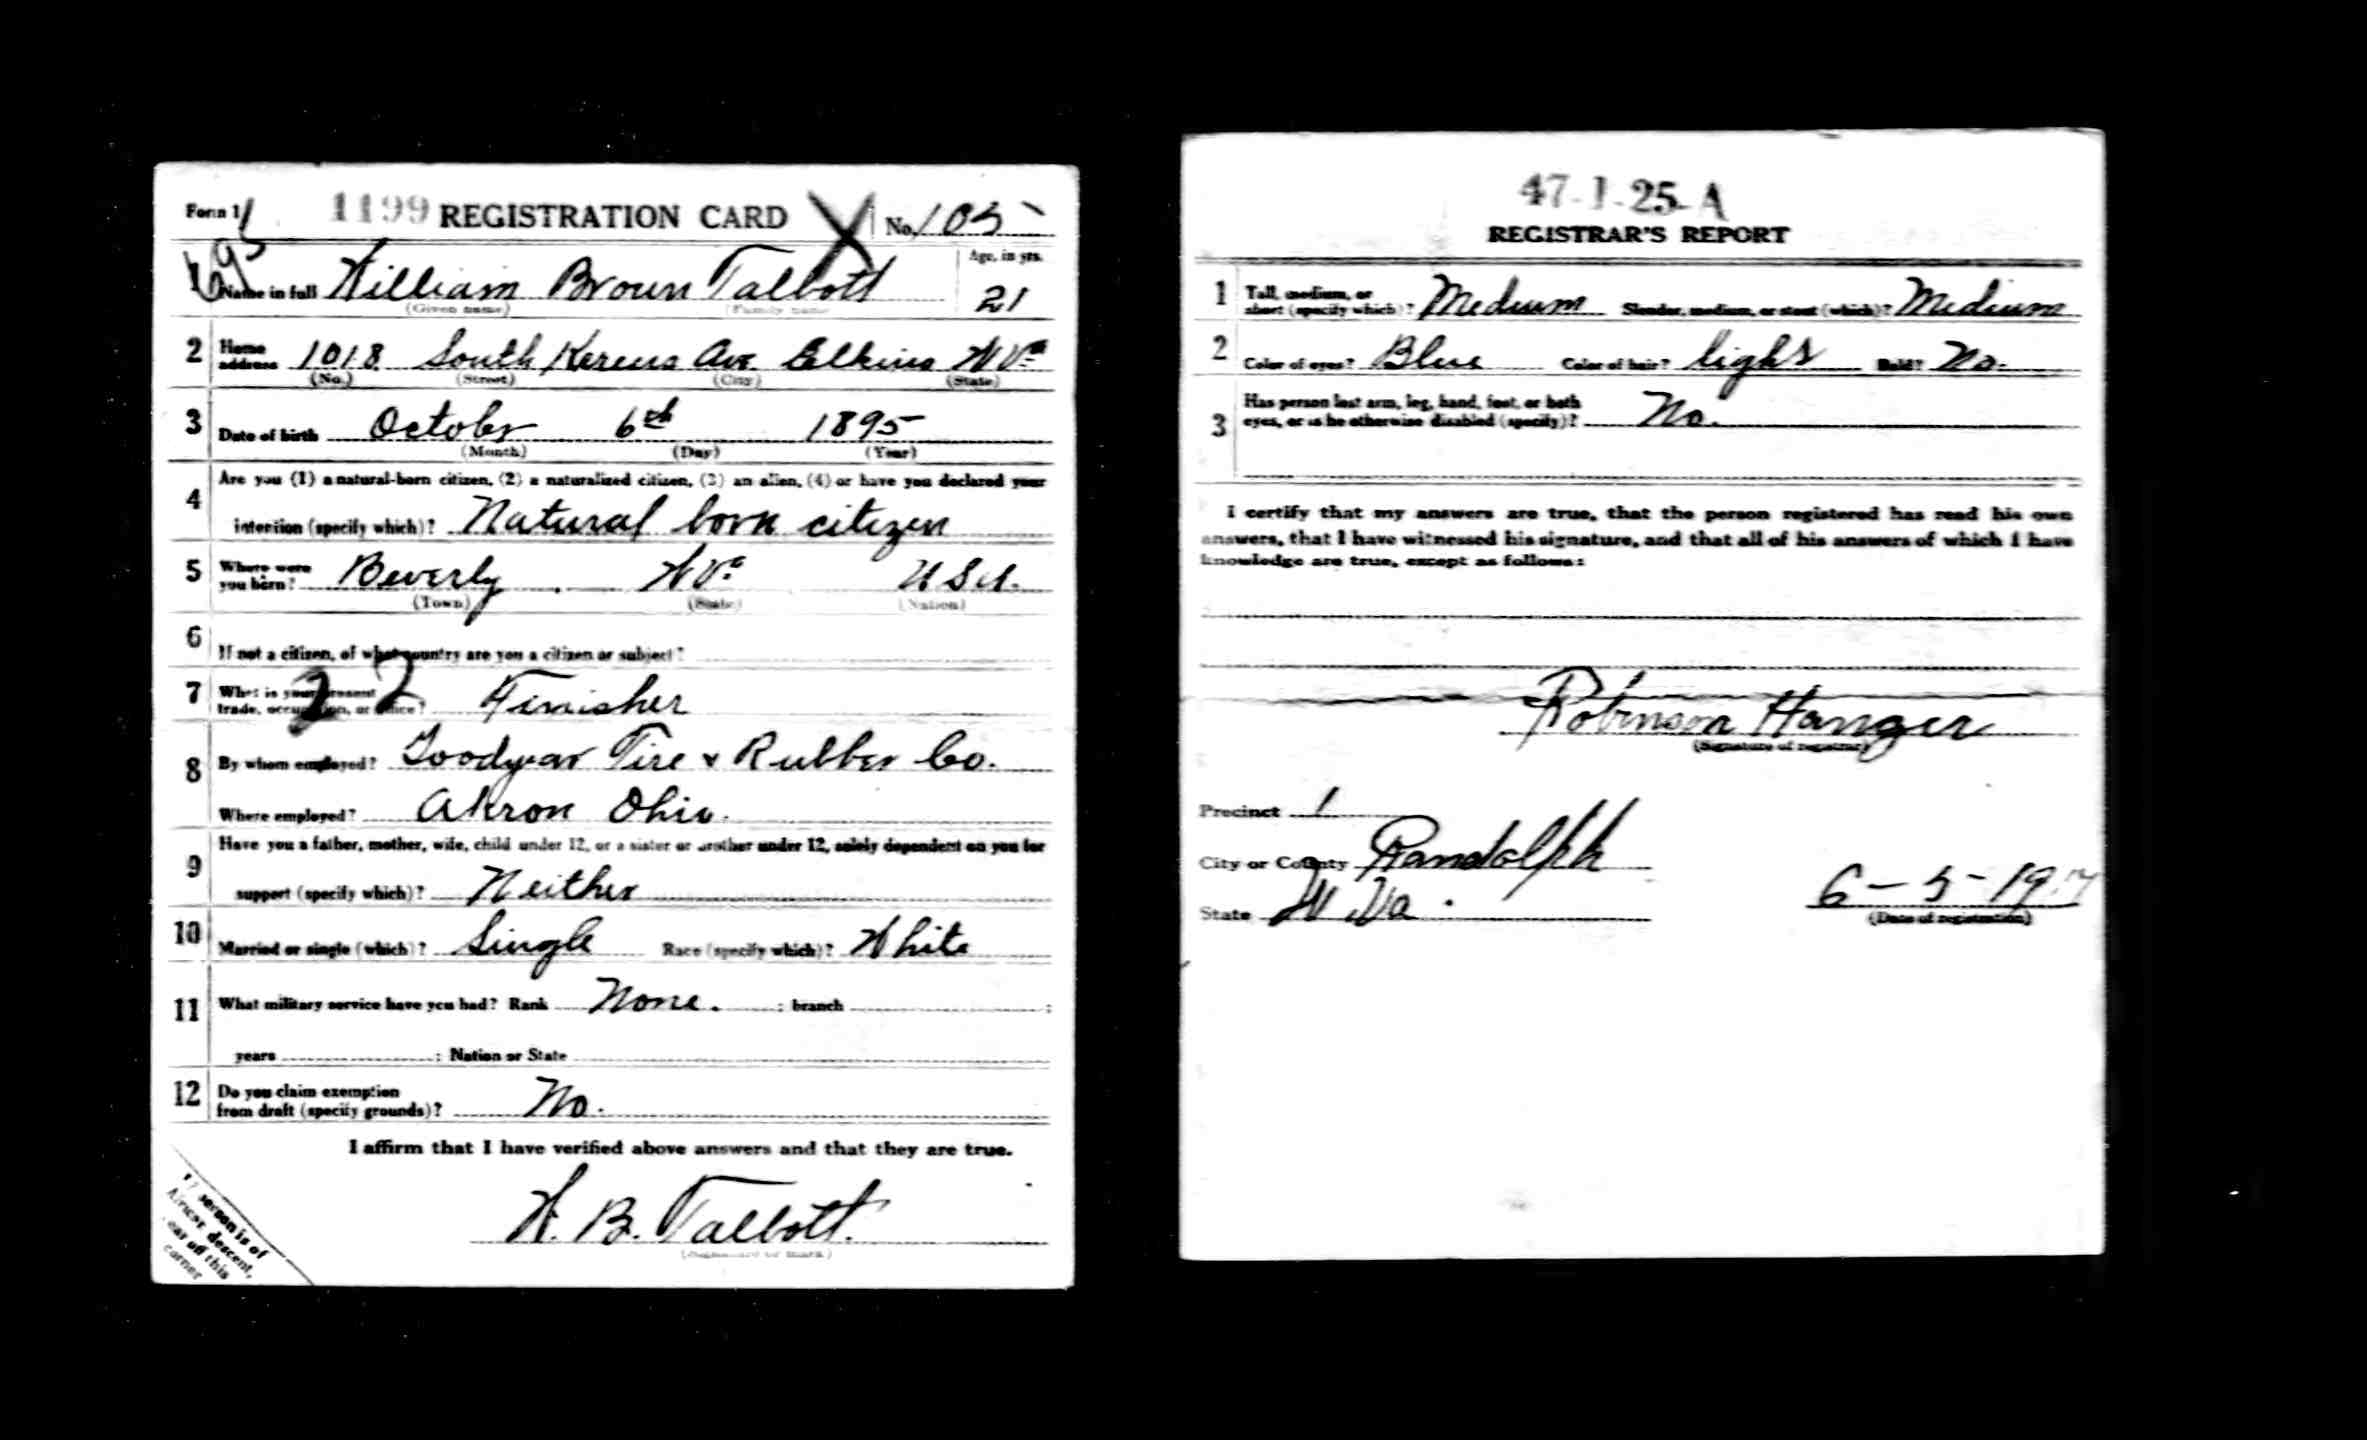 Form 1 1199 REGISTRATION CARD No. 105
Age, in yrs.
1 Name in full William Brown Talbott 21
(Given name) (Family name)
2 Home address 1018 South Kerens Ave. Elkins W Va
(No.) (Street) (City) (State)
3 Date of birth October 6th 1895
(Month) (Day) (Year)
4 Are you (1) a natural-born citizen, (2) a naturalized citizen, (3) an alien, (4) or have you declared your
intention (specify which)? Natural born citizen
5 Where were you born? Beverly W Va U S A.
(Town) (State) (Nation)
6 If not a citizen, of what country are you a citizen or subject?
7 What is your present trade, occupation, or office? Finisher
22
8 By whom employed? Goodyear Tire & Rubber Co.
Where employed? Akron Ohio.
9 Have you a father, mother, wife, child under 12, or a sister or brother under 12, solely dependent on you for
support (specify which)? Neither
10 Married or single (which)? Single Race (specify which)? White
11 What military service have you had? Rank None. ; branch ;
years ; Nation or State
12 Do you claim exemption
from draft (specify grounds)? No.
I affirm that I have verified above answers and that they are true.
W. B. Talbott.
(Signature or mark)
If person is of
African descent,
tear off this
corner
47-1-25-A
REGISTRAR'S REPORT
1 Tall, medium, or
short (specify which)? Medium Slender, medium, or stout (which)? Medium
2 Color of eyes? Blue Color of hair? light Bald? No.
3 Has person lost arm, leg, hand, foot, or both
eyes, or is he otherwise disabled (specify)? No.
I certify that my answers are true, that the person registered has read his own
answers, that I have witnessed his signature, and that all of his answers of which I have
knowledge are true, except as follows:
Robinson Hanger
(Signature of registrar)
Precinct 1
City or County Randolph
State W Va. 6-5-1917
(Date of registration)